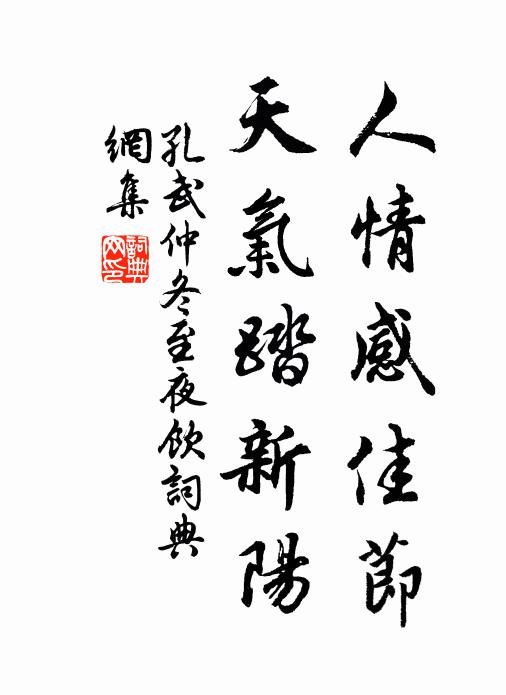 人情感佳節
天氣踏新陽
孔武仲冬至夜飲詞典
網集
詞典網印